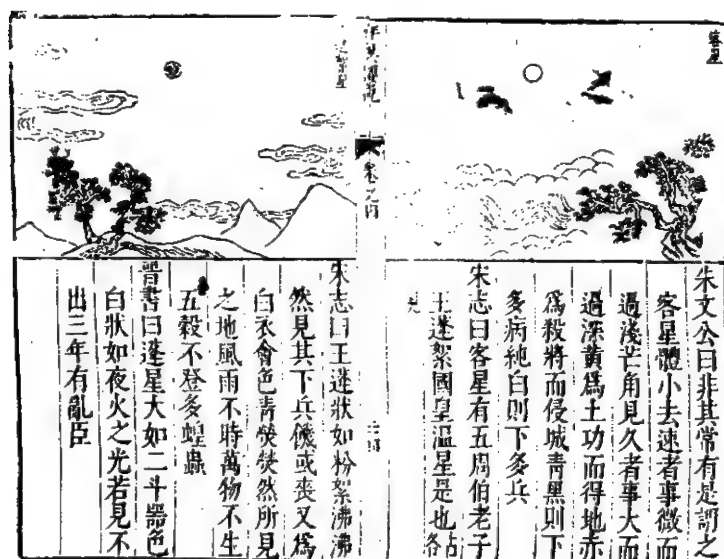 客星
朱文公曰非其常有是謂之
客星體小去速者事微而
過淺芒角見久者事大而
過深黃為土功而得地赤
為殺將而侵城青黑則下
多病純白則下多兵
宋志曰客星有五周伯老子
王蓬絮國皇溫星是也占各
卷之四
宋志曰王蓬狀如粉絮沸沸
然見其下兵饑或喪又為
白衣會色青熒熒然所見
之地風雨不時萬物不生
五穀不登多蝗蟲
晉書曰蓬星大如二斗器色
白狀如夜火之光若見不
出三年有亂臣